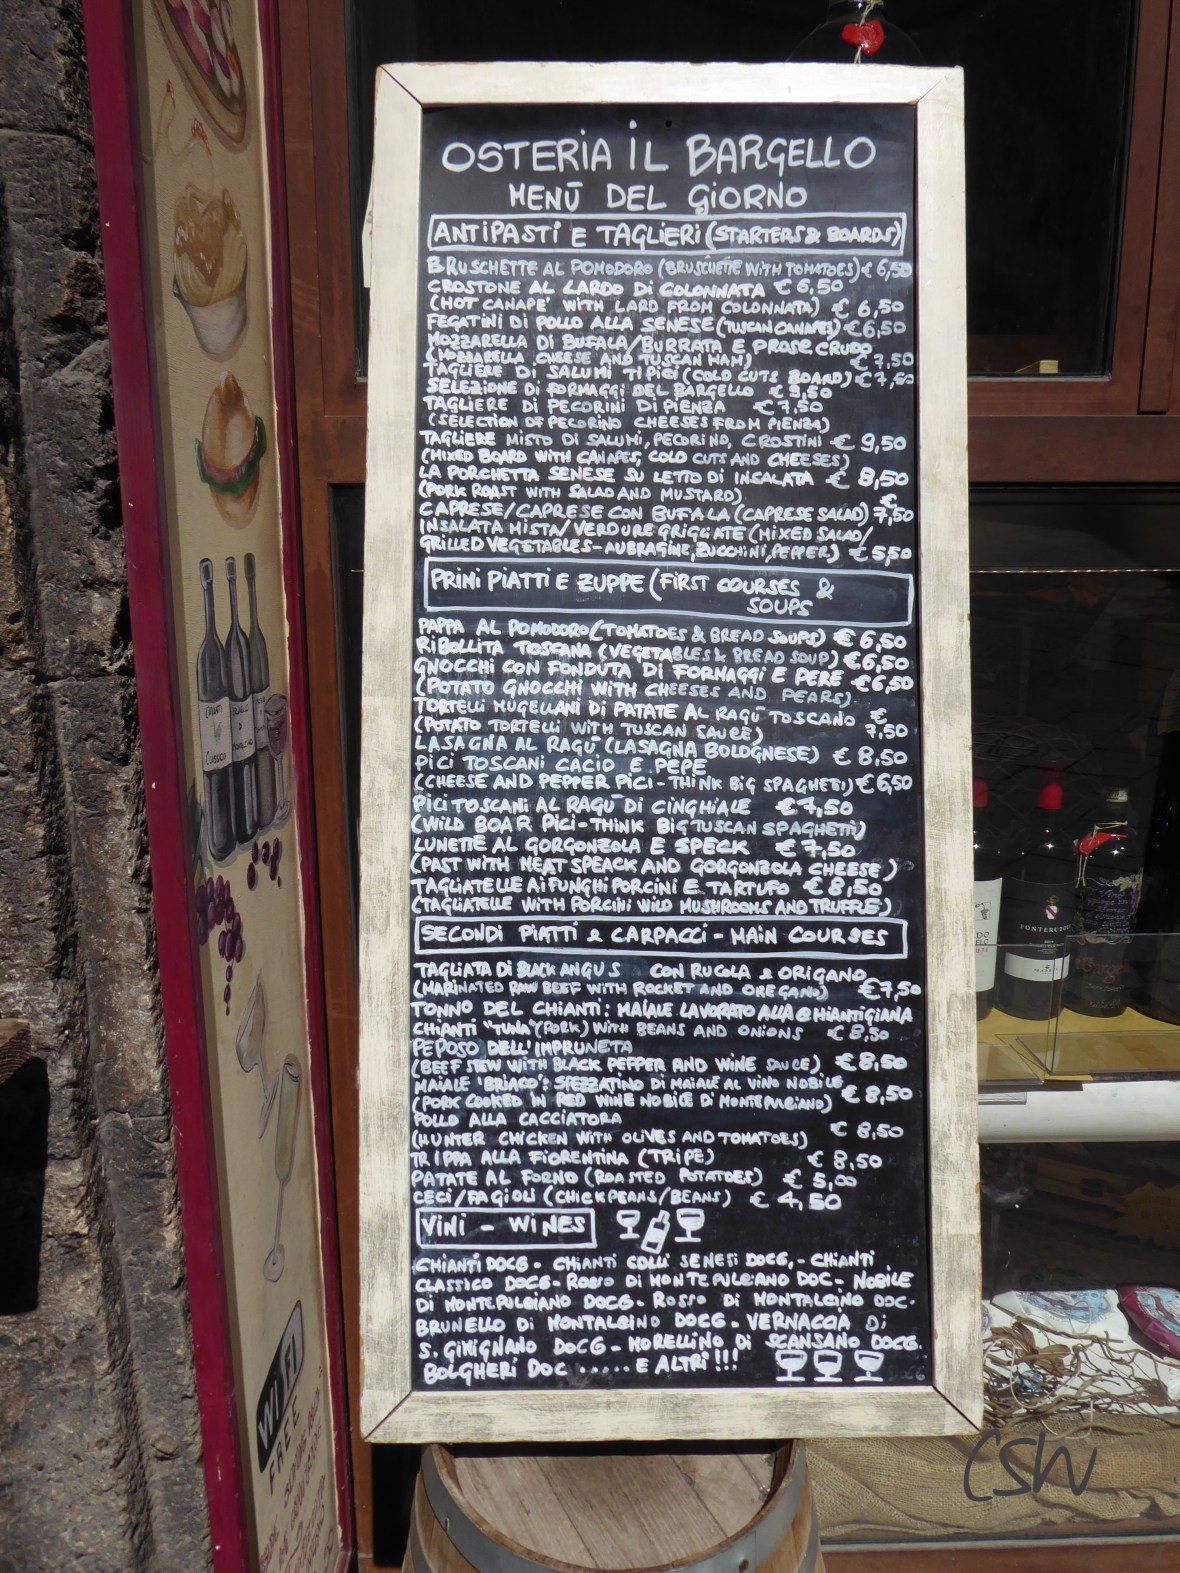 OSTERIA IL BARGELLO
MENÙ DEL GIORNO
ANTIPASTI E TAGLIERI (STARTERS & BOARDS)
BRUSCHETTE AL POMODORO (BRUSCHETTE WITH TOMATOES) € 6,50
CROSTONE AL LARDO DI COLONNATA € 6,50
(HOT CANAPE' WITH LARD FROM COLONNATA) € 6,50
FEGATINI DI POLLO ALLA SENESE (TUSCAN CANAPES) € 6,50
MOZZARELLA DI BUFALA/BURRATA E PROSC CRUDO
(MOZZARELLA CHEESE AND TUSCAN HAM) € 7,50
TAGLIERE DI SALUMI TIPICI (COLD CUTS BOARD) € 7,50
SELEZIONE DI FORMAGGI DEL BARGELLO €
TAGLIERE DI PECORINI DI PIENZA € 7,50
(SELECTION OF PECORINO CHEESES FROM PIENZA)
TAGLIERE MISTO DI SALUMI, PECORINO, CROSTINI € 9,50
(MIXED BOARD WITH CANAPES, COLD CUTS AND CHEESES)
LA PORCHETTA SENESE SU LETTO DI INSALATA € 8,50
(PORK ROAST WITH SALAD AND MUSTARD) €
CAPRESE/CAPRESE CON BUFALA (CAPRESE SALAD) 7,50
INSALATA MISTA/VERDURE GRIGLIATE (MIXED SALAD/
GRILLED VEGETABLES-AUBRAGINE, ZUCCHINI, PEPPER) € 5,50
PRIMI PIATTI E ZUPPE (FIRST COURSES &
SOUPS
PAPPA AL POMODORO (TOMATOES & BREAD SOUPS) € 6,50
RIBOLLITA TOSCANA (VEGETABLES & BREAD SOUP) € 6,50
GNOCCHI CON FONDUTA DI FORMAGGI E PERE € 6,50
(POTATO GNOCCHI WITH CHEESES AND PEARS)
TORTELLI MUGELLANI DI PATATE AL RAGÙ TOSCANO €
(POTATO TORTELLI WITH TUSCAN SAUCE) 7,50
LASAGNA AL RAGÙ (LASAGNA BOLOGNESE) € 8,50
PICI TOSCANI CACIO E PEPE
(CHEESE AND PEPPER PICI - THINK BIG SPAGHETTI) € 6,50
PICI TOSCANI AL RAGÙ DI CINGHIALE € 7,50
(WILD BOAR PICI - THINK BIG TUSCAN SPAGHETTI)
LUNETTE AL GORGONZOLA E SPECK € 7,50
(PAST WITH MEAT SPEACK AND GORGONZOLA CHEESE)
TAGLIATELLE AI FUNGHI PORCINI E TARTUFO € 8,50
(TAGLIATELLE WITH PORCINI WILD MUSHROOMS AND TRUFFLE)
SECONDI PIATTI & CARPACCI - MAIN COURSES
TAGLIATA DI BLACK ANGUS CON RUCOLA & ORIGANO
(MARINATED RAW BEEF WITH ROCKET AND OREGANO) € 7,50
TONNO DEL CHIANTI: MAIALE LAVORATO ALLA CHIANTIGIANA
CHIANTI "TUNA" (PORK) WITH BEANS AND ONIONS € 8,50
PEPOSO DELL'IMPRUNETA
(BEEF STEW WITH BLACK PEPPER AND WINE SAUCE) € 8,50
MAIALE "BRIACO": SPEZZATINO DI MAIALE AL VINO NOBILE
(PORK COOKED IN RED WINE NOBILE DI MONTEPULCIANO) € 8,50
POLLO ALLA CACCIATORA
(HUNTER CHICKEN WITH OLIVES AND TOMATOES) € 8,50
TRIPPA ALLA FIORENTINA (TRIPE) € 8,50
PATATE AL FORNO (ROASTED POTATOES) € 5,00
CECI/FAGIOLI (CHICKPEANS/BEANS) € 4,50
VINI - WINES
CHIANTI DOCG - CHIANTI COLLI SENESI DOCG, - CHIANTI
CLASSICO DOCG - ROSSO DI MONTEPULCIANO DOC - NOBILE
DI MONTEPULCIANO DOCG - ROSSO DI MONTALCINO DOC -
BRUNELLO DI MONTALCINO DOCG - VERNACCIA DI
S. GIMIGNANO DOCG - MORELLINO DI SCANSANO DOCG.
BOLGHERI DOC ...... E ALTRI!!!
CHIANTI
CLASSICO
WiFi
FREE
FONTERUTOLI
CSW